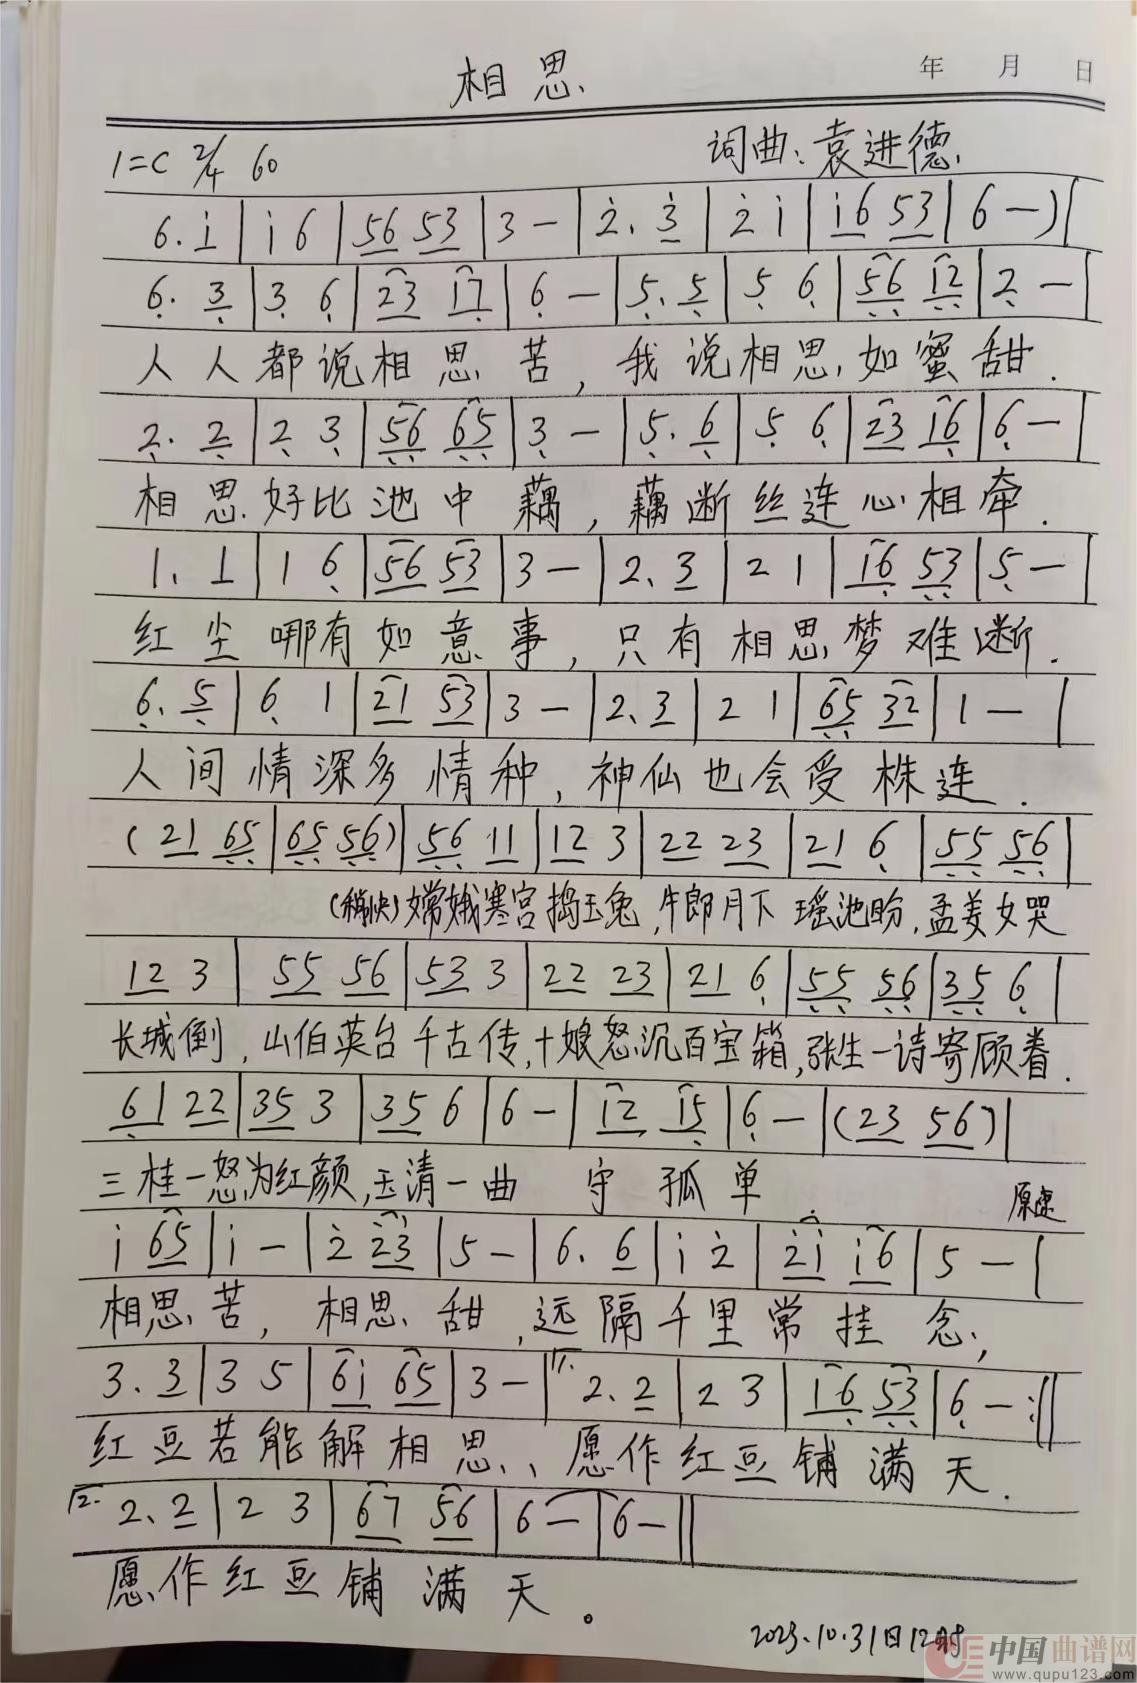 年 月 日
相思
1=C 2/4 60 词曲:袁进德
6. i | i 6 | 56 53 | 3 — | 2. 3 | 2 i | i6 53 | 6 —)|
6. 3 | 3 6 | 23 17 | 6 — | 5. 5 | 5 6 | 56 12 | 2 — |
人人都说相思苦,我说相思如蜜甜.
2. 2 | 2 3 | 56 65 | 3 — | 5. 6 | 5 6 | 23 16 | 6 — |
相思好比池中藕,藕断丝连心相牵.
1. 1 | 1 6 | 56 53 | 3 — | 2. 3 | 2 1 | 16 53 | 5 — |
红尘哪有如意事,只有相思梦难断.
6. 5 | 6 1 | 21 53 | 3 — | 2. 3 | 2 1 | 65 32 | 1 — |
人间情深多情种,神仙也会受株连.
(21 65 | 65 56)| 56 11 | 12 3 | 22 23 | 21 6 | 55 56 |
(稍快)嫦娥寒宫捣玉兔,牛郎月下瑶池盼,孟姜女哭
12 3 | 55 56 | 53 3 | 22 23 | 21 6 | 55 56 | 35 6 |
长城倒,山伯英台千古传,十娘怒沉百宝箱,张生一诗寄顾眷.
61 22 | 35 3 | 35 6 | 6 — | 12 15 | 6 — |(23 56)|
三桂一怒为红颜,玉清一曲守孤单 原速
i 65 | i — | 2 23 | 5 — | 6. 6 | i 2 | 2i i6 | 5 — |
相思苦,相思甜,远隔千里常挂念,
3. 3 | 3 5 | 6i 65 | 3 — | 1. 2. 2 | 2 3 | 16 53 | 6 — :||
红豆若能解相思,愿作红豆铺满天.
2. 2. 2 | 2 3 | 67 56 | 6 — | 6 — ||
愿作红豆铺满天。
2023.10.31日12时
中国曲谱网
www.qupu123.com